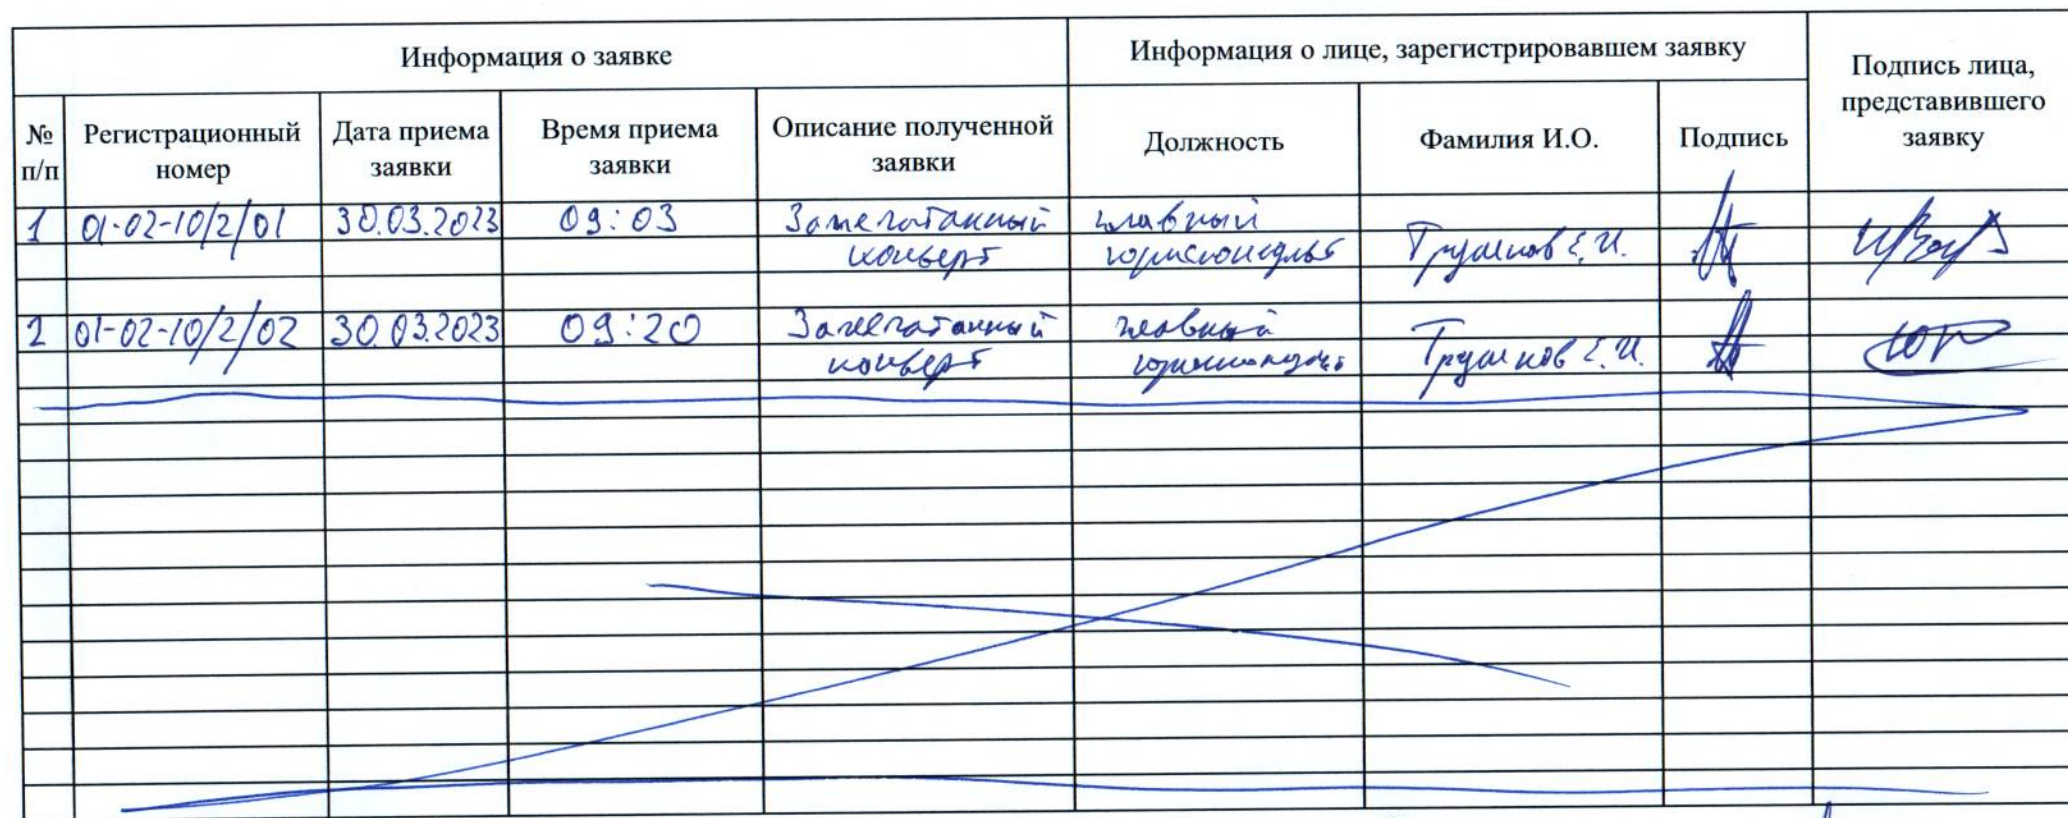 Информация о заявке
Информация о лице, зарегистрировавшем заявку
Подпись лица,
представившего
заявку
№
п/п
Регистрационный
номер
Дата приема
заявки
Время приема
заявки
Описание полученной
заявки
Должность
Фамилия И.О.
Подпись
1 01-02-10/2/01 30.03.2023 09:03 Запечатанный
конверт
главный
юрисконсульт
Е.И.
2 01-02-10/2/02 30.03.2023 09:20 Запечатанный
конверт
главный
юрисконсульт
Е.И.